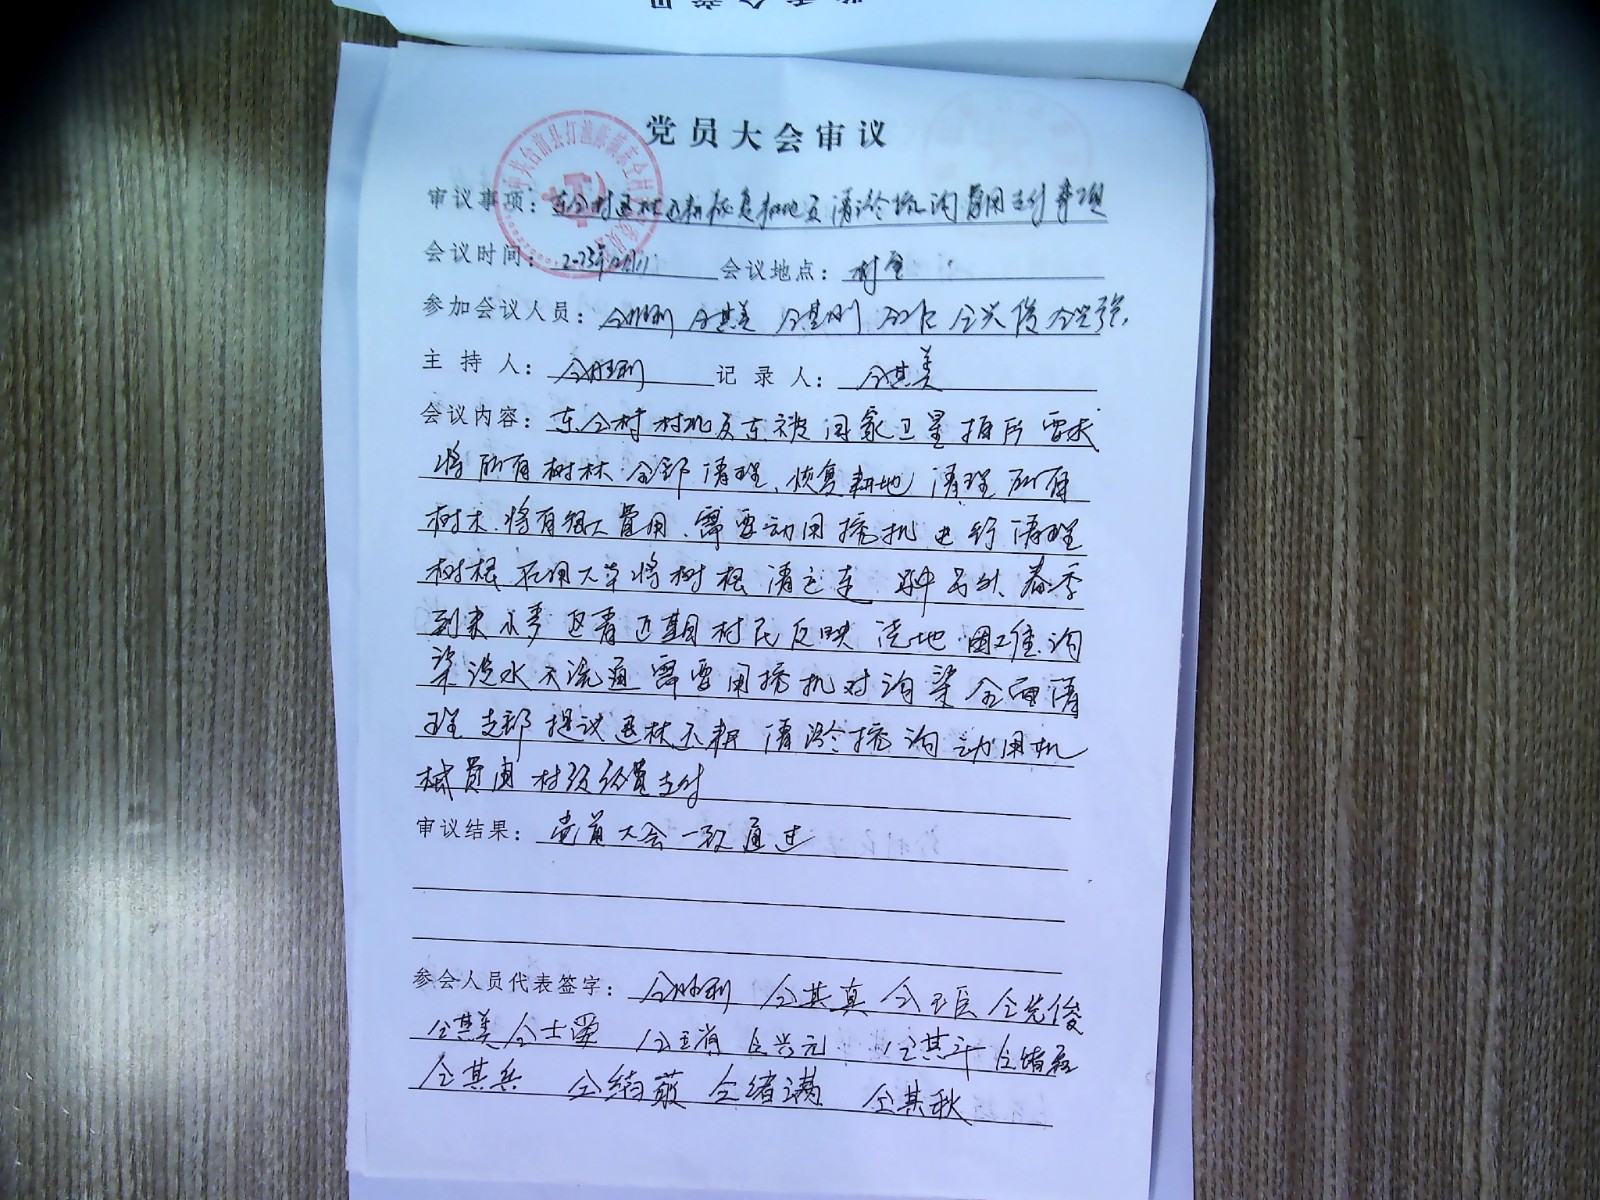 党员大会审议
审议事项：东仝村退林还耕恢复耕地及清淤挖沟费用支付事项
会议时间：2023年12月11 会议地点：村室
参加会议人员：仝胜利 仝其美 仝其刚 仝兴俊 仝兴强
主持人：仝胜利 记录人：仝其美
会议内容：东仝村村北及东被国家卫星拍后要求
将所有树林全部清理、恢复耕地 清理所有
树木、将有很大费用、需要动用挖机进行清理
树根 在用大车将树根清运走 春季
到来 近期村民反映浇地困难、沟
渠淤水不流通 需要用挖机对沟渠全面清
理 支部提议退林还耕 清淤挖沟动用机
械费用 村级经费支付
审议结果：党员大会一致通过
参会人员代表签字：仝胜利 仝其真 仝玉臣 仝先俊
仝其美 仝士学 仝兴元 仝其斗
仝其兵 仝绪满 仝其秋